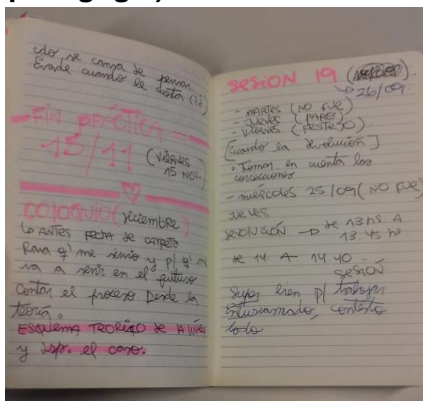 se cansa de pensar.
Evade cuando le cuesta
FIN PRÁCTICA
15/11 (VIERNES
15 NOV.
COLOQUIO (Diciembre)
ANTES FECHA de
Para q' me sirvió y p/ q' me
va a servir en el futuro
Contar el proceso Desde la
teoría.
ESQUEMA TEORICO de
y dsp. el caso.
SESION 19
26/09
- MARTES (NO FUE)
- JUEVES (PARO)
- VIERNES (FESTEJO)
[cuando la devolución]
Tomar en cuenta las
correcciones
- miércoles 25/09 (NO FUE)
JUEVES
DEVOLUCIÓN → de 13 hs A
13:45 hs
de 14 A 14 40
SESIÓN
bien p/ trabajar
Entusiasmado, contesto
todo